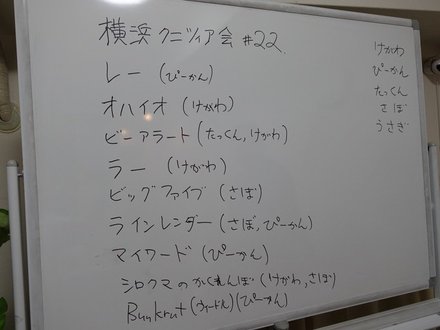 横浜クニツィア会 #22
レー (ぴーかん)
オハイオ (けがわ)
ビーアラート (たっくん, けがわ)
ラー (けがわ)
ビッグファイブ (さぼ)
ラインレンダー (さぼ, ぴーかん)
マイワード (ぴーかん)
シロクマのかくれんぼ (けがわ, さぼ)
Bunkrut (ウィードん) (ぴーかん)
けがわ
ぴーかん
たっくん
さぼ
うさぎ